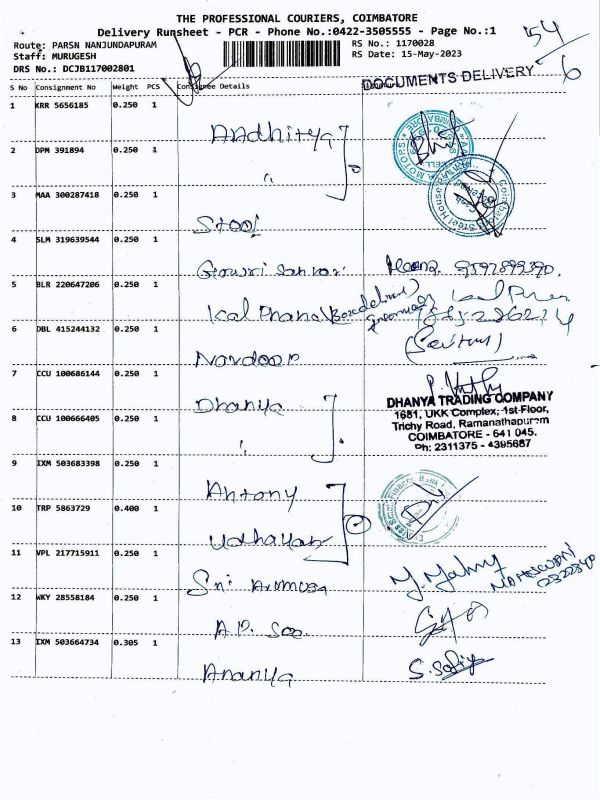 THE PROFESSIONAL COURIERS, COIMBATORE
Delivery Runsheet - PCR - Phone No.:0422-3505555 - Page No.:1
Route: PARSN NANJUNDAPURAM RS No.: 1170028
Staff: MURUGESH RS Date: 15-May-2023
DRS No.: DCJB117002801
54/6
DOCUMENTS DELIVERY
S No Consignment No Weight PCS Consignee Details
1 KRR 5656185 0.250 1
Aadhitya
2 DPM 391894 0.250 1
"
3 MAA 300287418 0.250 1
Steel
4 SLM 319639544 0.250 1
Gowri Sankar
5 BLR 220647206 0.250 1
6 DBL 415244132 0.250 1
7 CCU 100686144 0.250 1
Dhanya
8 CCU 100666405 0.250 1
"
DHANYA TRADING COMPANY
1681, UKK Complex, 1st Floor,
Trichy Road, Ramanathapuram
COIMBATORE - 641 045.
Ph: 2311375 - 4395687
9 IXM 503683398 0.250 1
Antony
10 TRP 5863729 0.400 1
Udhayam
11 VPL 217715911 0.250 1
Sri
12 WKY 28558184 0.250 1
A.P.
13 IXM 503664734 0.305 1
Ananya